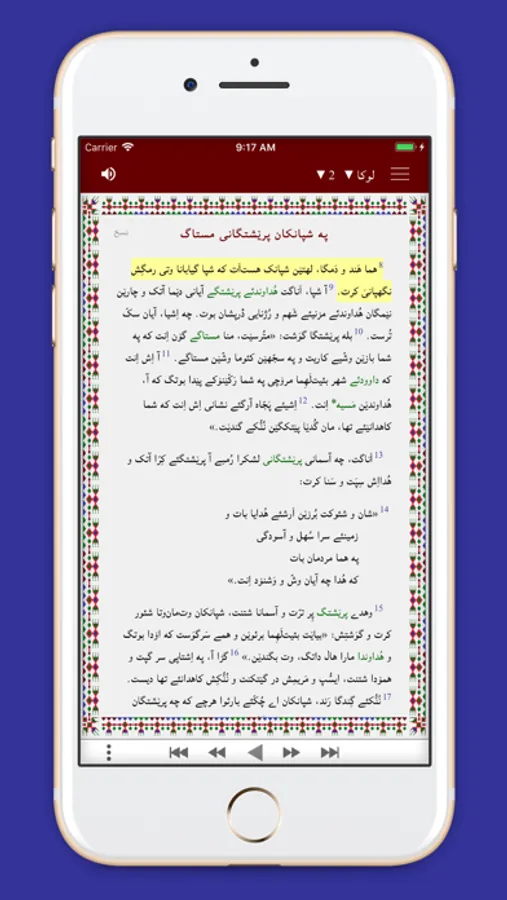 Carrier 9:17 AM
لوکا ▼ 2 ▼
په شپانکان پرێشتگانی مستاگ
نسخ
8 هما هَند و دَمگا، لهتێن شپانک هستاَت که شپا گیابانا وتی رمگِش
نگهپانیَ کرت. 9 آ شپا، اَناگت هُداوندئے پرێشتگے آیانی دێما آتک و چارێن
نێمگان هُداوندئے مزنیئے شَهم و رُژنایی دْرپشان بوت. چه اِشیا، آیان سکّ
تُرست. 10 بله پرێشتگا گوَشت: «متُرسێت، منا مستاگے گوَن اِنت که په
شما بازێن وشّیے کاریت و په سجّهێن کئوما وشّێن مستاگے. 11 آ اِش اِنت
که داوودئے شهر بئیت‌لَهِما مرۆچی په شما رَکّێنۆکے پێدا بوتگ که آ،
هُداوندێن مَسیه* اِنت. 12 اِشیئے پَجّاه آرگئے نشانی اِش اِنت که شما
کاهدانیئے تها، مان گُدێا پێتکگێن نُنُّکے گندێت.»
13 اَناگت، چه آسمانی پرێشتگانی لشکرا رُمبے آ پرێشتگئے کِرّا آتک و
هُدااِش سِپَت و سَنا کرت:
14 «شان و شئوکت بُرزێن اَرشئے هُدایا بات و
زمینئے سرا سُهل و آسودگی
په هما مردمان بات
که هُدا چه آیان وشّ و وَشنۆد اِنت.»
15 وهدے پرێشتگ پِر ترّت و آسمانا شتنت، شپانکان وت‌مان‌وتا شئور
کرت و گوَشتِش: «بیایێت بئیت‌لَهِما برئوێن و همے سَرگوَست که اۆدا بوتگ
و هُداوندا مارا هال داتگ، وت بگندێن.» 16 گڑا آ، په اِشتاپی سر گپت و
همۆدا شتنت، ایسُّپ و مَریمِش در گێتکنت و نُنُّکِش کاهدانئے تها دیست.
17 نُنُّکئے گِندگا رَند، شپانکان اے چُکّئے بارئوا هرچے که چه پرێشتگان